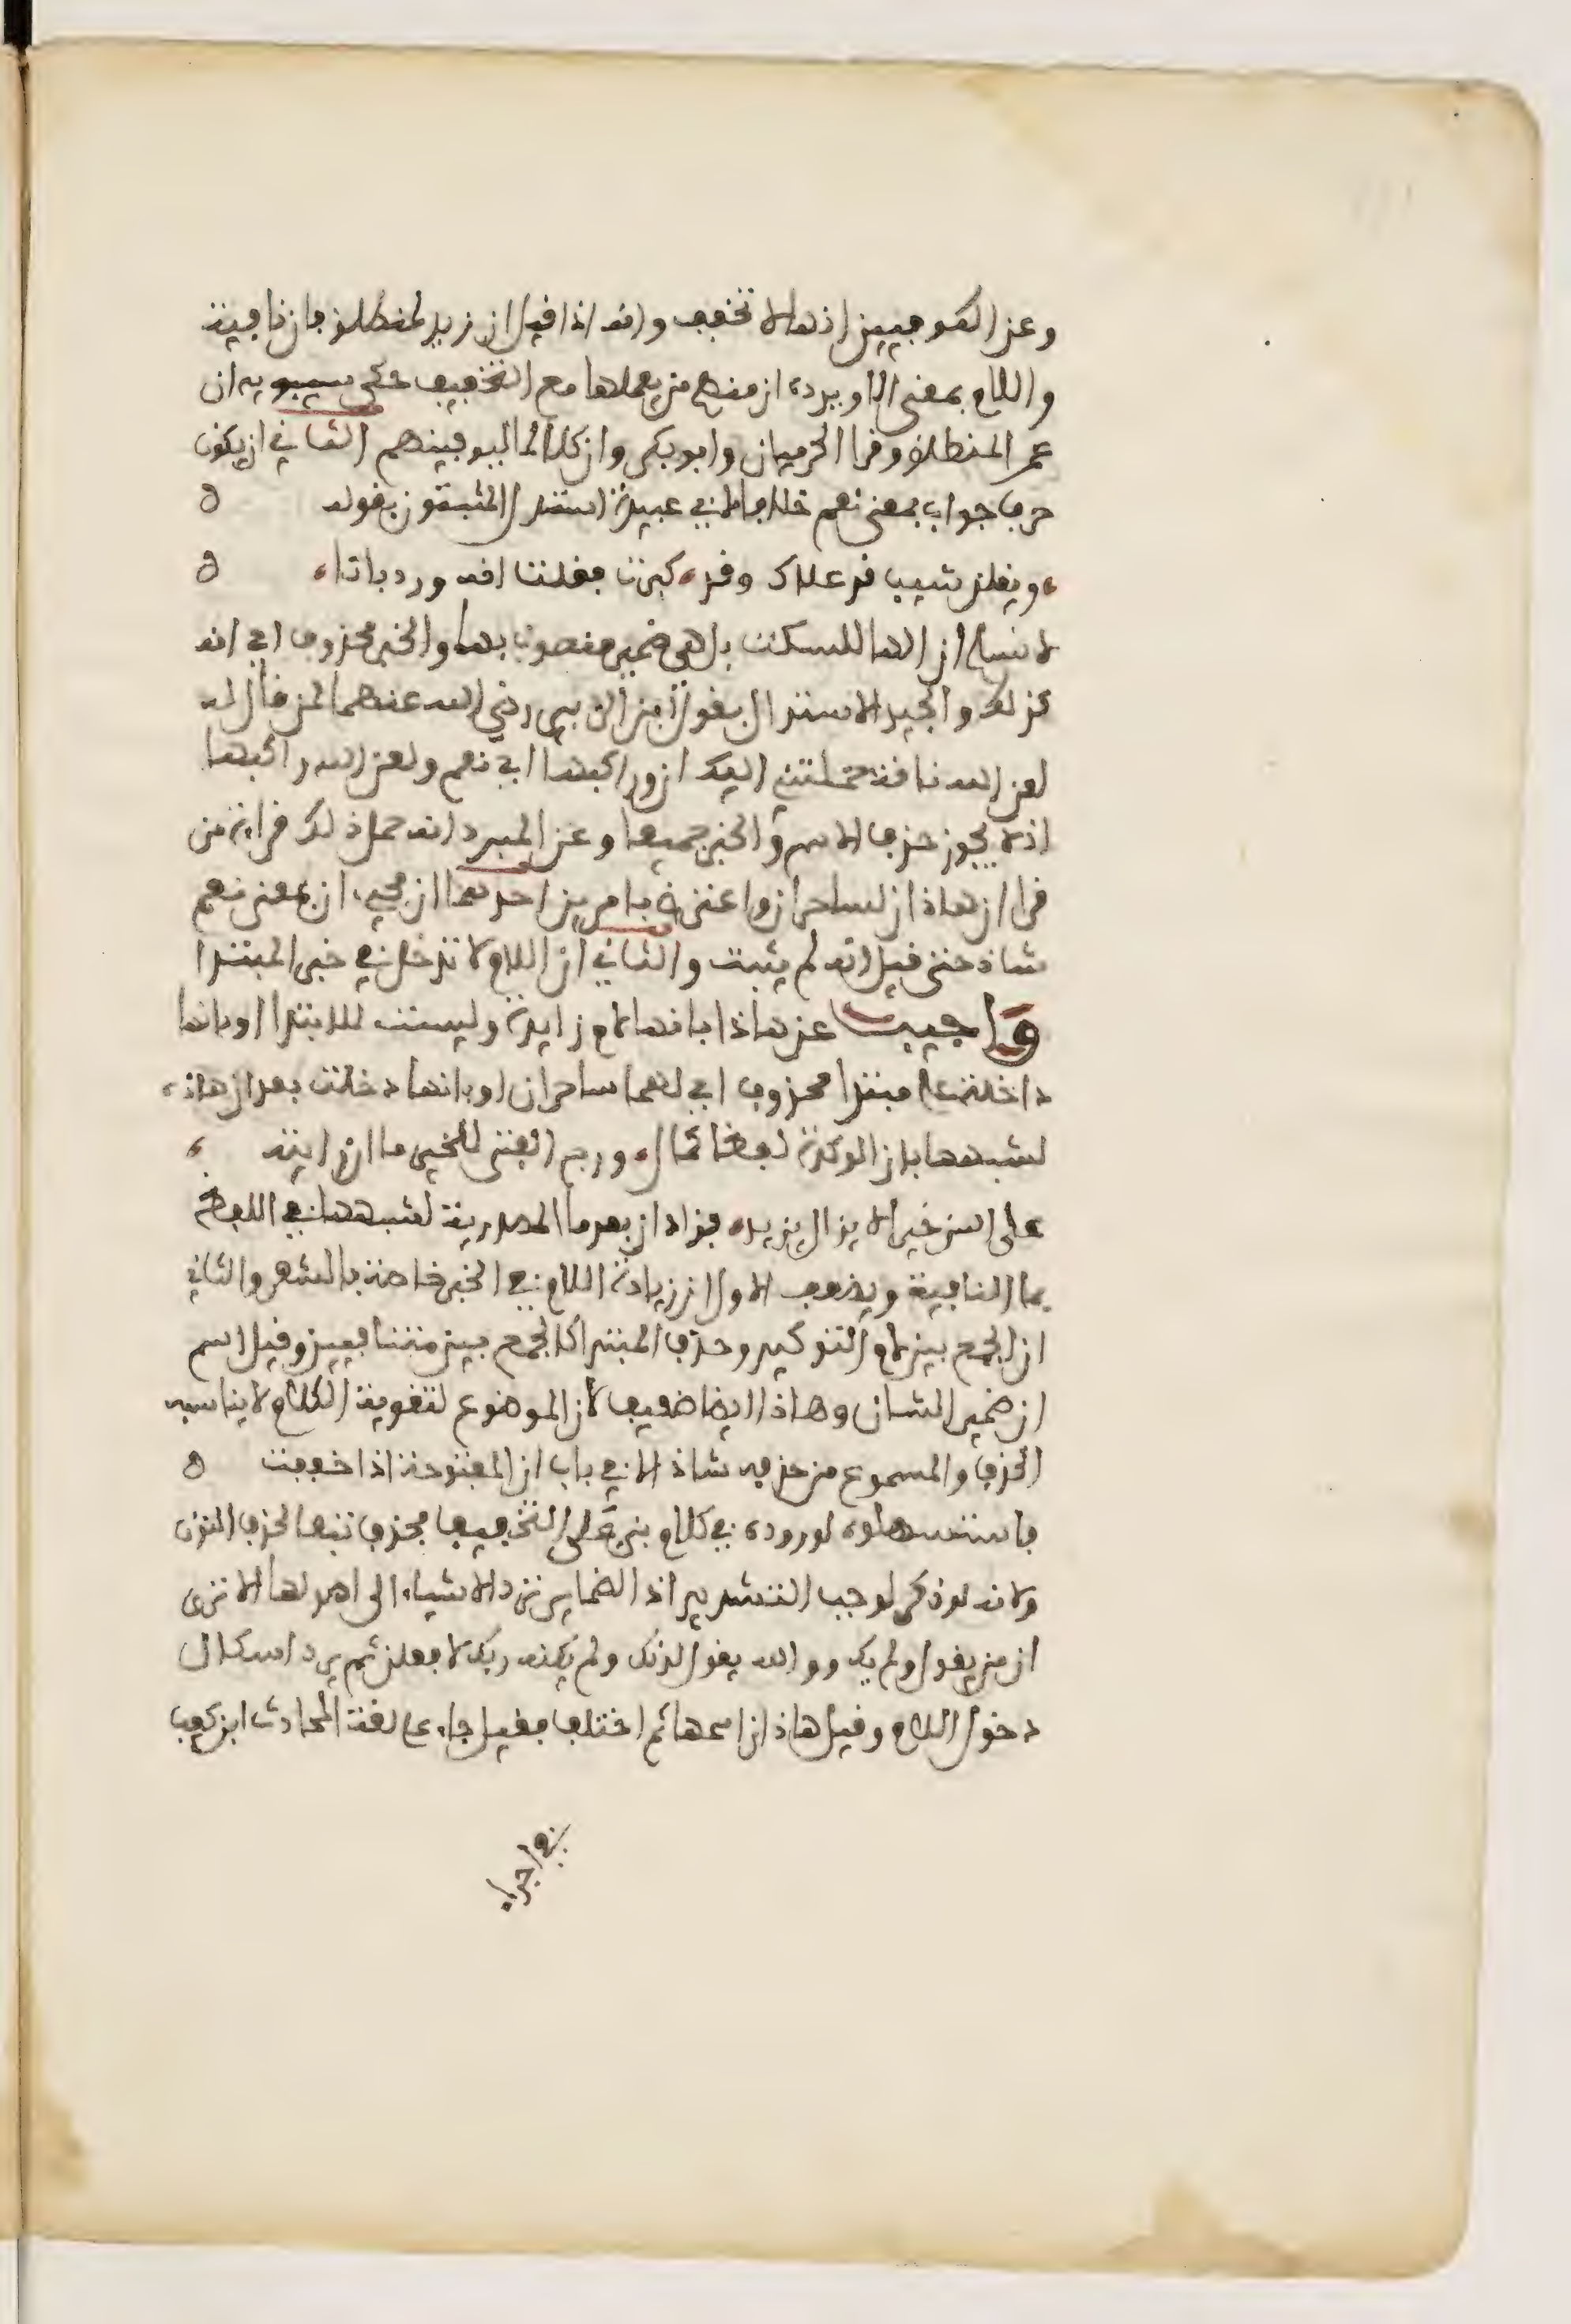 وعن الكوفيين انها لا تخفف وانه اذا قيل ان زيد لمنطلق فان نافية
واللام بمعنى الا ويرده ان منهم من يعملها مع التخفيف حكى سيبويه ان
عمر المنطلق وقرا الحرميان وابو بكر وان كلا لما ليوفينهم الثاني ان يكون
حرف جواب بمعنى نعم خلافا لابي عبيدة استدل المثبتون بقوله ه
ويقلن شيب قد علاك وقد كبرت فقلت انه ورد بانا ه
لا نسلم ان الها للسكت بل هي ضمير منصوب بها والخبر محذوف اي انه
كذلك والجيد الاستدلال بقول ابن الزبير رضي الله عنهما لمن قال له
لعن الله ناقة حملتني اليك ان وراكبها اي نعم ولعن الله راكبها
اذ لا يجوز حذف الاسم والخبر جميعا وعن المبرد انه حمل ذلك قراءة من
قرا ان هاذان لساحران واعترض بامرين احدهما ان مجيء ان بمعنى نعم
شاذ حتى قيل انه لم يثبت والثاني ان اللام لا تدخل في خبر المبتدا
واجيب عن هاذا بانها لام زايدة وليست للابتدا او بانها
داخلة على مبتدا محذوف اي لهما ساحران او بانها دخلت بعد ان هاذه
لشبهها بان الموكدة لفظا كما قال ورج الفتى للخير ما ان رايته
على السن خيرا لا يزال يزيد فزاد ان بعد ما المصدرية لشبهها في اللفظ
بما النافية ويضعف الاول ان زيادة اللام في الخبر خاصة بالشعر والثاني
ان الجمع بين لام التوكيد وحذف المبتدا كالجمع بين متنافيين وقيل اسم
ان ضمير الشان وهاذا ايضا ضعيف لان الموضوع لتقوية الكلام لا يناسبه
الحذف والمسموع من حذفه شاذ الا في باب ان المفتوحة اذا خففت ه
فاستسهلوه لوروده في كلام بني على التخفيف فحذف تبعا لحذف النون
ولانه لو ذكر لوجب التشديد اذ الضماير ترد الاشياء الى اصولها الا ترى
ان من يقول ولم يك ووالله يقول لدنك ولم يكنه وبك لافعلن ثم يرد اشكال
دخول اللام وقيل هاذان اسمها ثم اختلف فقيل جاء على لغة الحارث ابن كعب
في اجراء